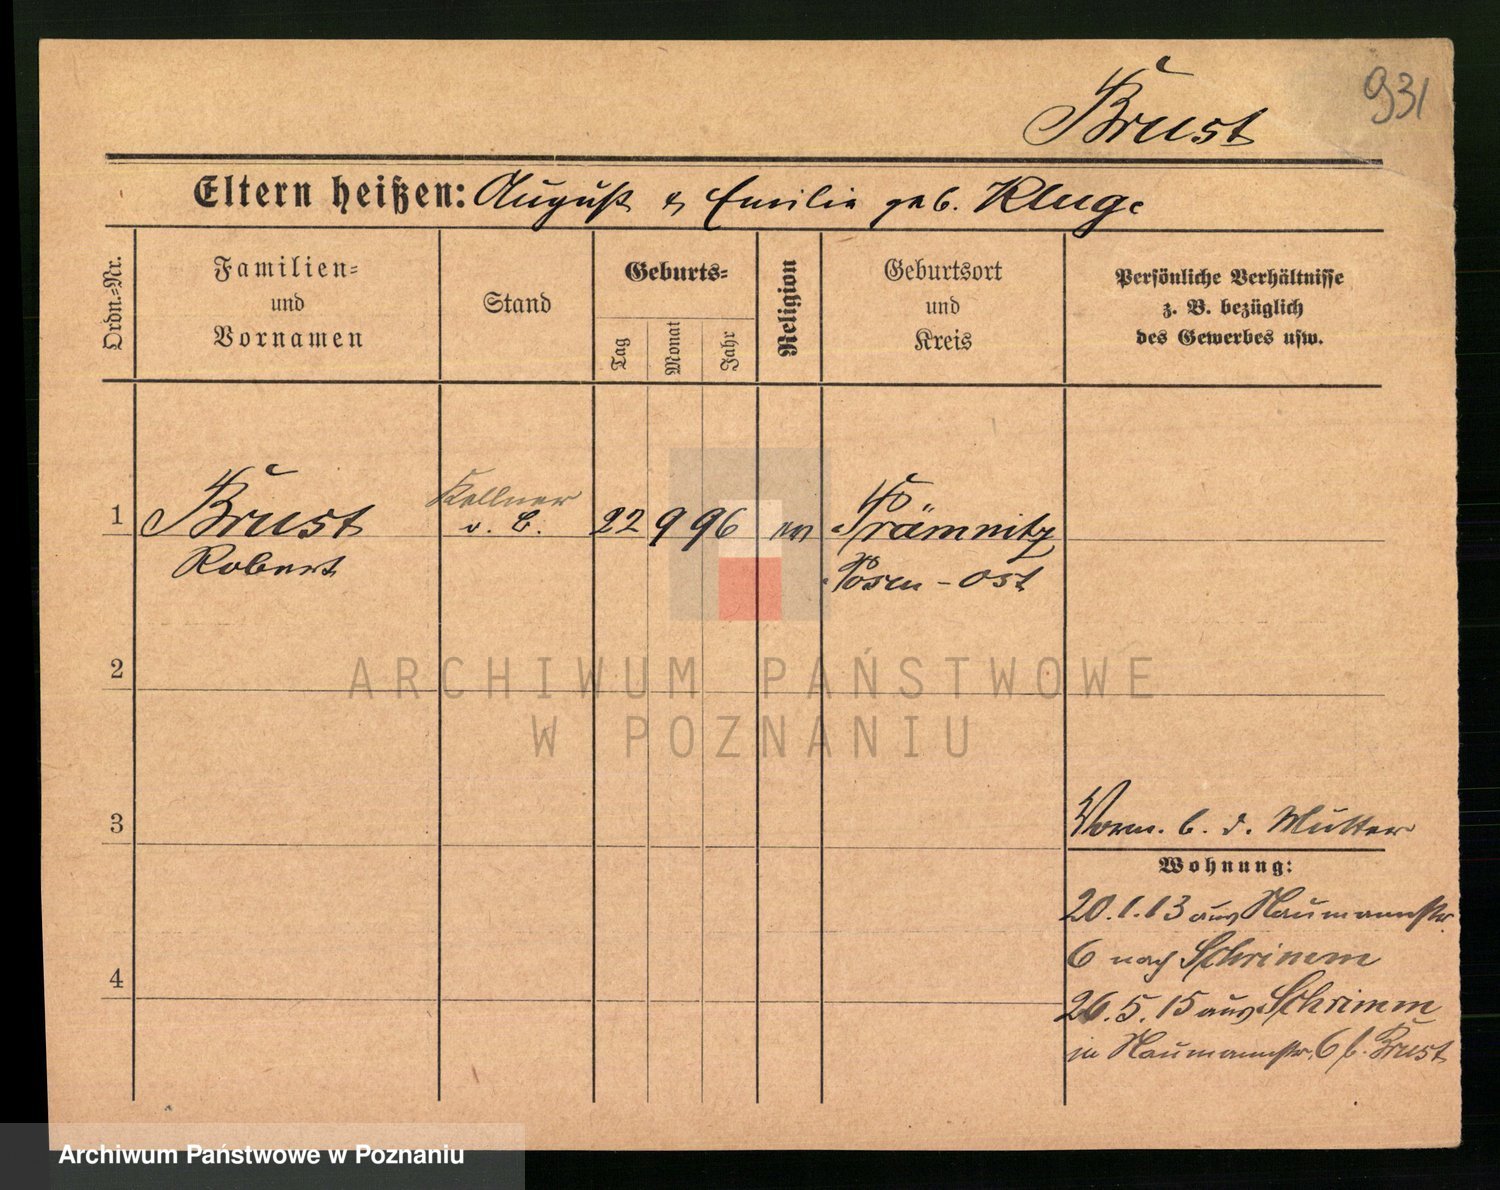 931
Brust
Eltern heißen: August & Emilie geb. Kluge
Ordn.-Nr.
Familien-
und
Vornamen
Stand
Geburts-
Tag
Monat
Jahr
Religion
Geburtsort
und
Kreis
Persönliche Verhältnisse
z. B. bezüglich
des Gewerbes usw.
1
Brust
Robert
Kellner
o. B.
22 9 96
ev
Prämnitz
Posen-Ost
2
3
4
Vorm. b. d. Mutter
Wohnung:
20.1.13 aus Naumannstr.
6 nach Schrimm
26.5.15 aus Schrimm
in Naumannstr. 6 b. Brust
ARCHIWUM PAŃSTWOWE
W POZNANIU
Archiwum Państwowe w Poznaniu